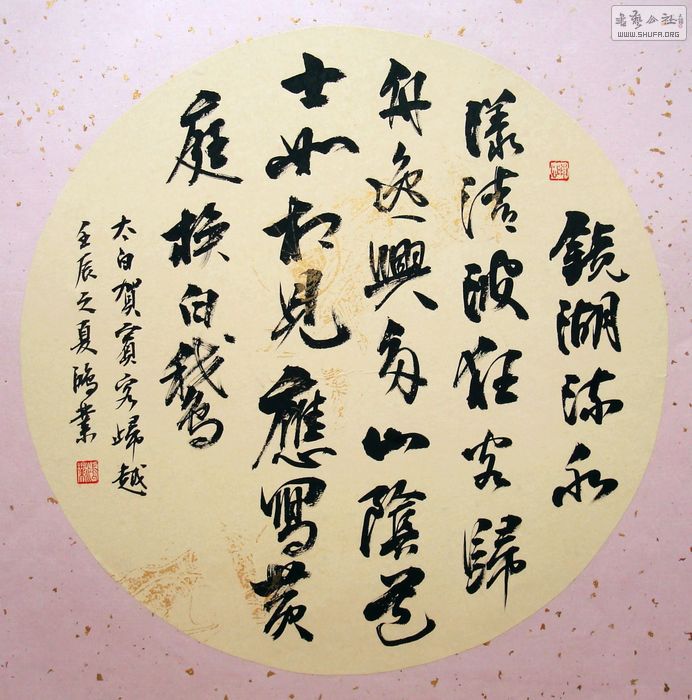 鏡湖流水
漾清波狂客歸
舟逸興多山陰道
士如相見應寫黃
庭換白鵝
太白賀賓客歸越
壬辰之夏 業
書藝公社
WWW.SHUFA.ORG